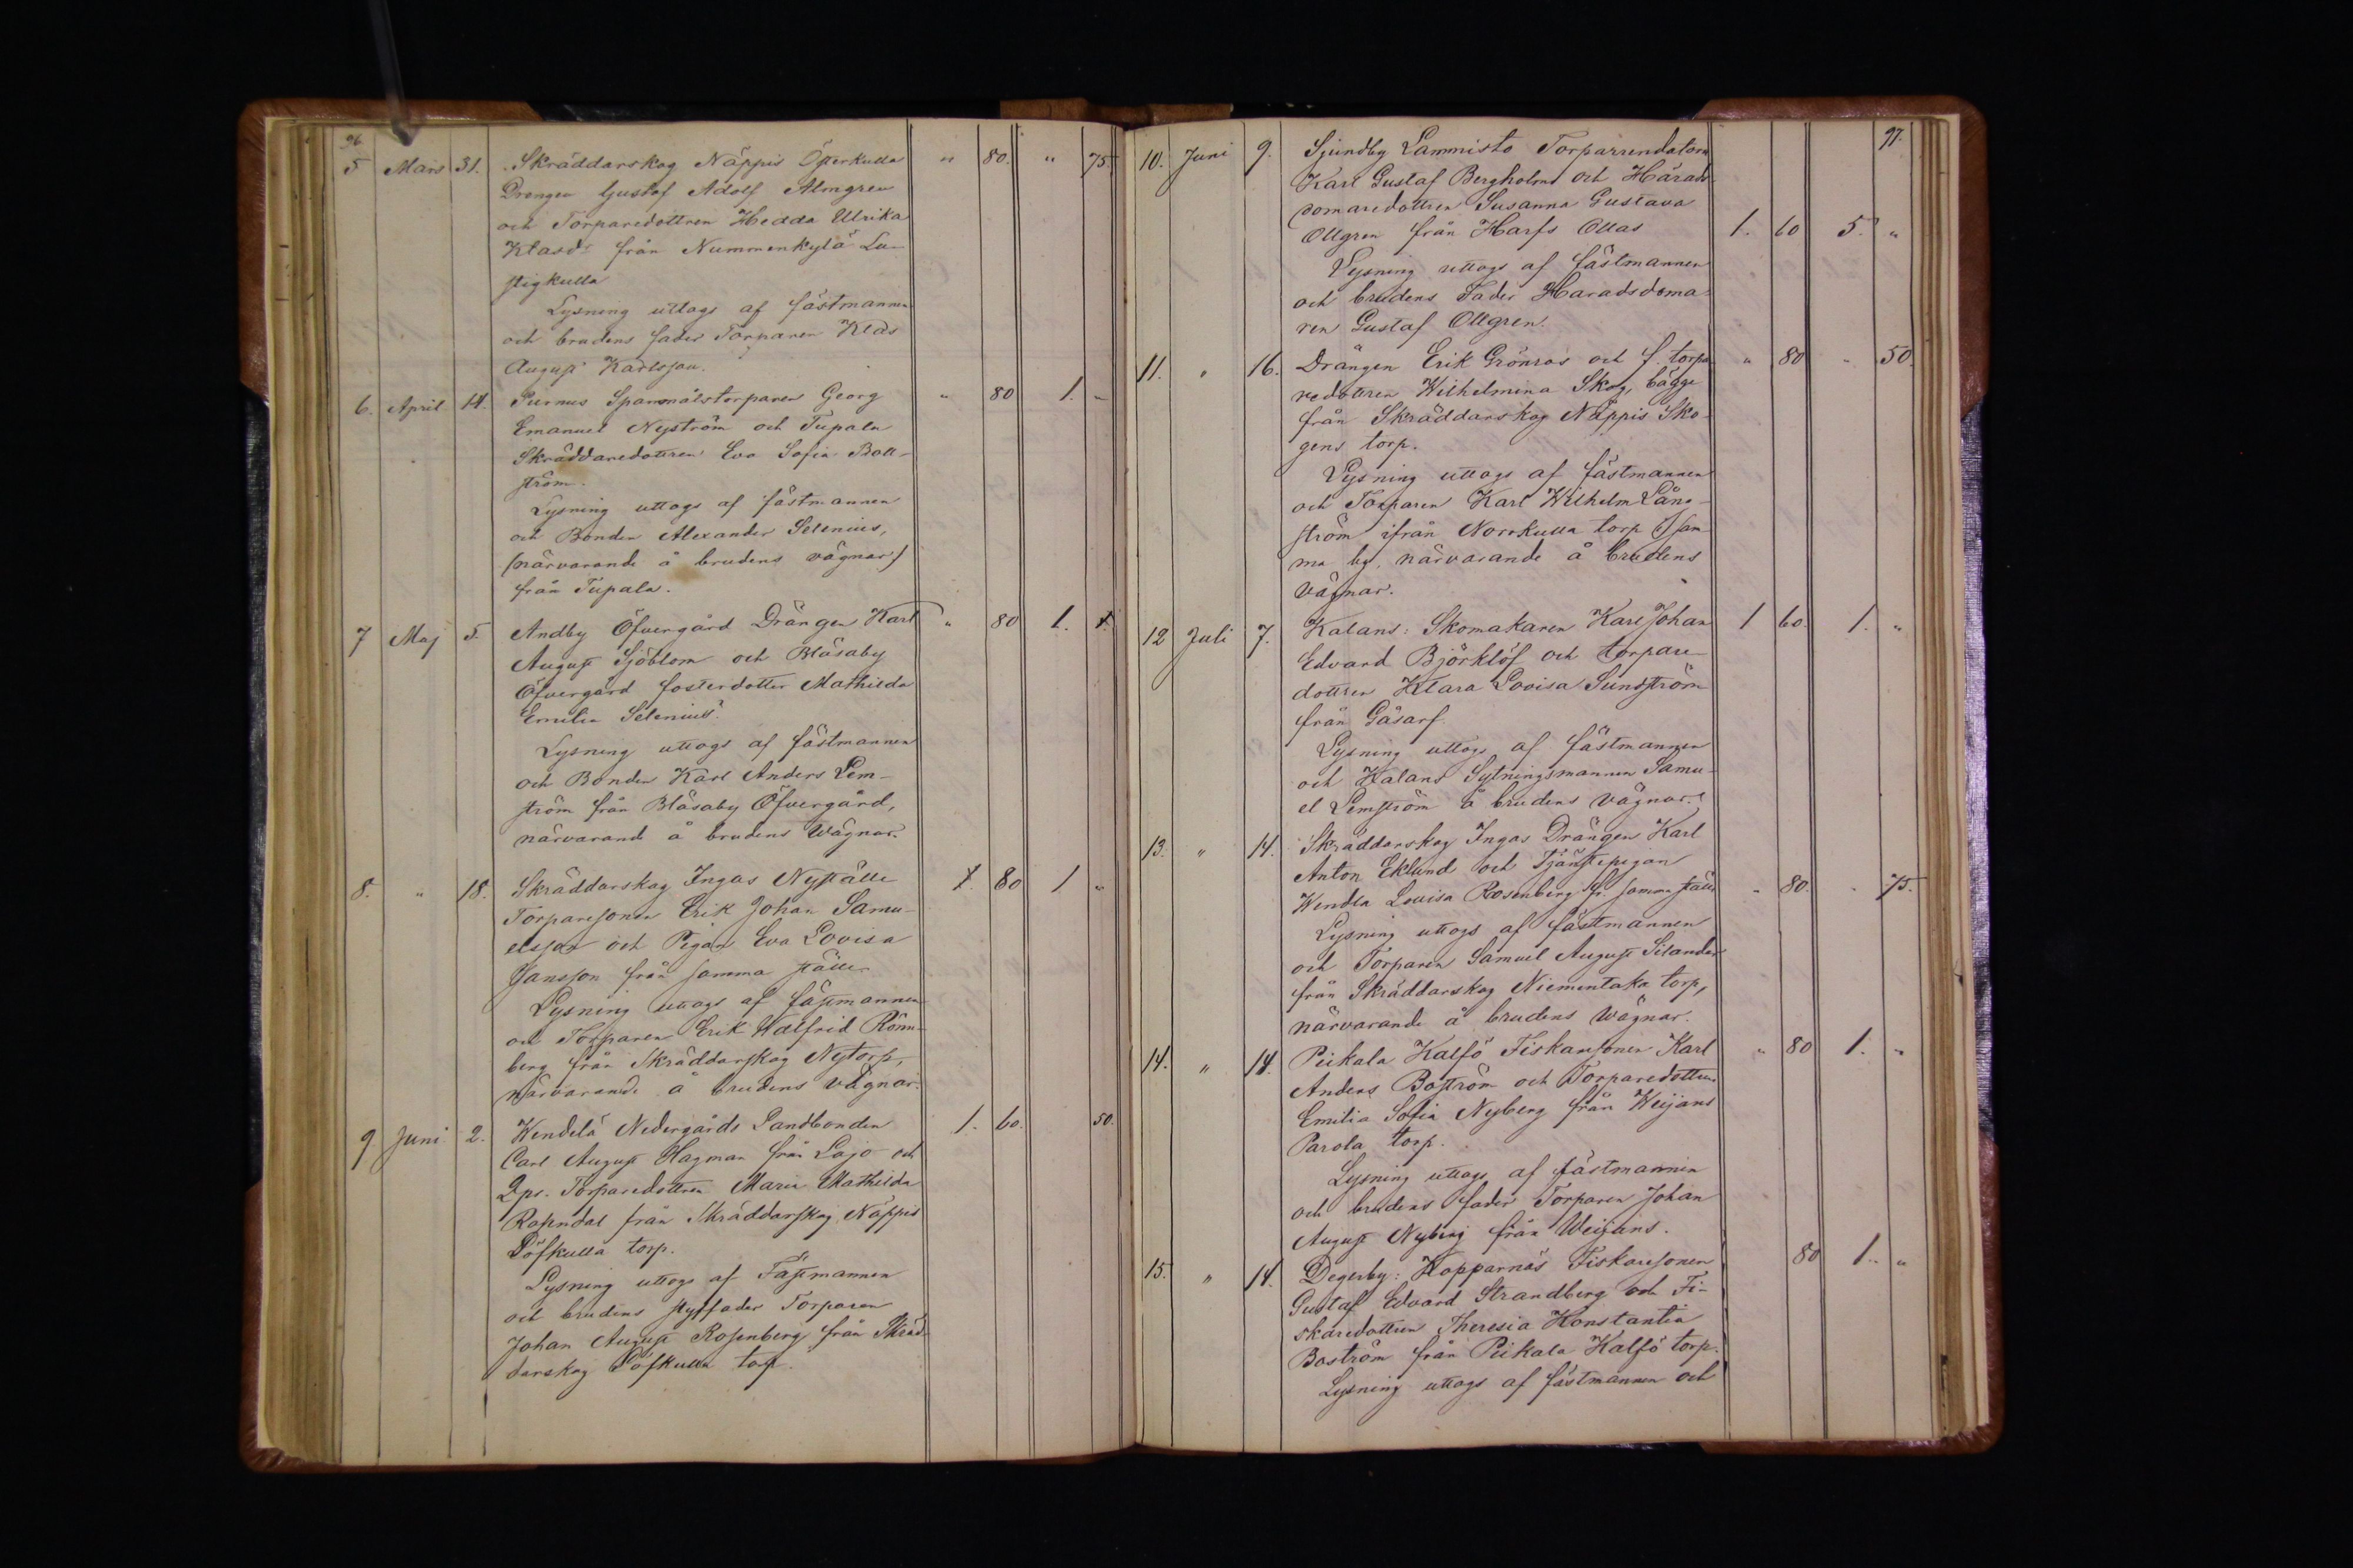 96.
5 Mars 31. Skräddarskog Näppis Österkulla " 80. " 75.
Drengen Gustaf Adolf Almgren
och Torparedottren Hedda Ulrika
Klasdr från Nummenkylä Lu-
stigkulla
Lysning uttogs af fästmannen
och brudens fader Torparen Klas
August Karlsson.
6. April 14. Purnus Spanmålstorparen Georg " 80 1. "
Emanuel Nyström och Tupala
Skräddaredottren Eva Sofia Boll-
ström.
Lysning uttogs af fästmannen
och Bonden Alexander Selenius,
(närvarande å brudens vägnar)
från Tupala.
7 Maj 5. Andby Öfvergård Drängen Karl " 80 1.
August Sjöblom och Bläsaby
Öfvergård fosterdotter Mathilda
Emilia Selenius.
Lysning uttogs af fästmannen
och Bonden Karl Anders Lem-
ström från Bläsaby Öfvergård,
närvarande å brudens Wägnar.
8. " 18. Skräddarskog Ingas Nyställe 80 1 "
Torparesonen Erik Johan Samu-
elsson och Pigan Eva Lovisa
Jansson från samma ställe.
Lysning uttogs af fästmannen
och Torparen Erik Walfrid Rönn-
berg från Skräddarskog Nytorp,
närvarande å brudens vägnar.
9 Juni 2. Wendelä Nedergårds Landbonden 1. 60. 50.
Carl August Hagman från Lojo och
Dps. Torparedottren Maria Mathilda
Rosendal från Skräddarskog Näppis
Löfkulla torp.
Lysning uttogs af Fästmannen
och brudens styffader Torparen
Johan August Rosenberg från Skräd-
darskog Löfkulla torp.
97.
10. Juni 9. Sjundby Lammisto Torparrendatorn
Karl Gustaf Bergholm och Härads-
domaredottren Susanna Gustava
Ollgren från Harfs Ollas 1. 60 5. "
Lysning uttogs af fästmannen
och brudens Fader Häradsdoma-
ren Gustaf Ollgren.
11. " 16. Drängen Erik Grönros och f. torpa- " 80 " 50.
redottren Wilhelmina Skog, bägge
från Skräddarskog Näppis Sko-
gens torp.
Lysning uttogs af fästmannen
och Torparen Karl Wilhelm Lång-
ström ifrån Norrkulla torp i sam-
ma by, närvarande å brudens
vägnar.
12 Juli 7. Kalans: Skomakaren Karl Johan 1 60. 1. "
Edvard Björklöf och torpare-
dottren Klara Lovisa Sundström
från Gåsarf.
Lysning uttogs af fästmannen
och Kalans Sytningsmannen Samu-
el Lemström å brudens vägnar.
13. " 14. Skräddarskog Ingas Drängen Karl
Anton Eklund och Tjänstepigan
Wendla Lovisa Rosenberg fr. samma ställe " 80. " 75.
Lysning uttogs af fästmannen
och Torparen Samuel August Silander
från Skräddarskog Niementaka torp,
närvarande å brudens Wägnar.
14. " 14. Pickala Kalfö Fiskaresonen Karl " 80 1. "
Anders Boström och Torparedottren
Emilia Sofia Nyberg från Weijans
Parola torp.
Lysning uttogs af fästmannen
och brudens fader Torparen Johan
August Nyberg från Weijans.
15. " 14. Degerby: Kopparnäs Fiskaresonen 80 1. "
Gustaf Edvard Strandberg och Fi-
skaredottren Theresia Konstantia
Boström från Pickala Kalfö torp.
Lysning uttogs af fästmannen och